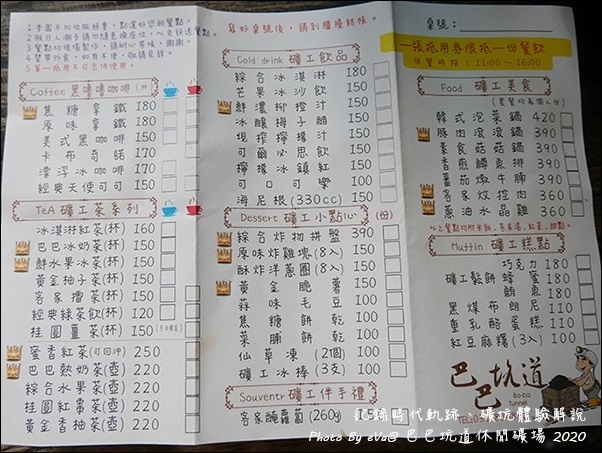 Coffee 黑嚕嚕咖啡
焦糖拿鐵 180
原味拿鐵 180
美式黑咖啡 150
卡布奇諾 170
漂浮冰咖啡 170
經典天使可可 150
TeA 礦工茶系列
冰淇淋紅茶(杯) 160
巴巴冰奶茶(杯) 150
鮮水果冰茶(杯) 150
黃金柚子茶(杯) 150
客家擂茶(杯) 150
經典綠茶飲(杯) 120
桂圓薑茶(杯) 150
蜜香紅茶(可回沖) 250
巴巴熱奶茶(壺) 220
綜合水果茶(壺) 220
桂圓紅棗茶(壺) 220
黃金香柚茶(壺) 220
寫好桌號後,請到櫃檯結帳。
Cold drink 礦工飲品
綜合冰淇淋 180
芒果冰沙飲 150
鮮濃柳橙汁 150
冰釀梅子醋 150
現榨檸檬汁 150
可爾必思飲 150
檸檬冰鎮紅 150
可口可樂 100
海尼根(330cc) 150
Dessert 礦工小點心 (份)
綜合炸物拼盤 390
原味炸雞塊(8入) 150
酥炸洋蔥圈(8入) 150
黃金脆薯 150
蒜味毛豆 100
焦糖餅乾 100
菜脯餅乾 100
仙草凍(2個) 100
礦工冰棒(3支) 100
Souvenir 礦工伴手禮
客家醃蘿蔔(260g) 150
桌號:
一張抵用券限抵一份餐飲
供餐時段:11:00~16:00
Food 礦工美食
韓式泡菜鍋 420
豚肉滾滾鍋 390
素食菇菇鍋 390
香煎鱒魚排 390
番茄燉牛腩 390
客家炆控肉 360
蔥油水晶雞 360
Muffin 礦工糕點
巧克力 180
礦工鬆餅 蜂蜜 180
鮪魚 180
黑煤布朗尼 110
重乳酪蛋糕 110
紅豆麻糬(3入) 100
巴巴坑道
Baba Tunnel
記錄時代軌跡、礦坑體驗解說
Photo By eVa@ 巴巴坑道休閒礦場 2020